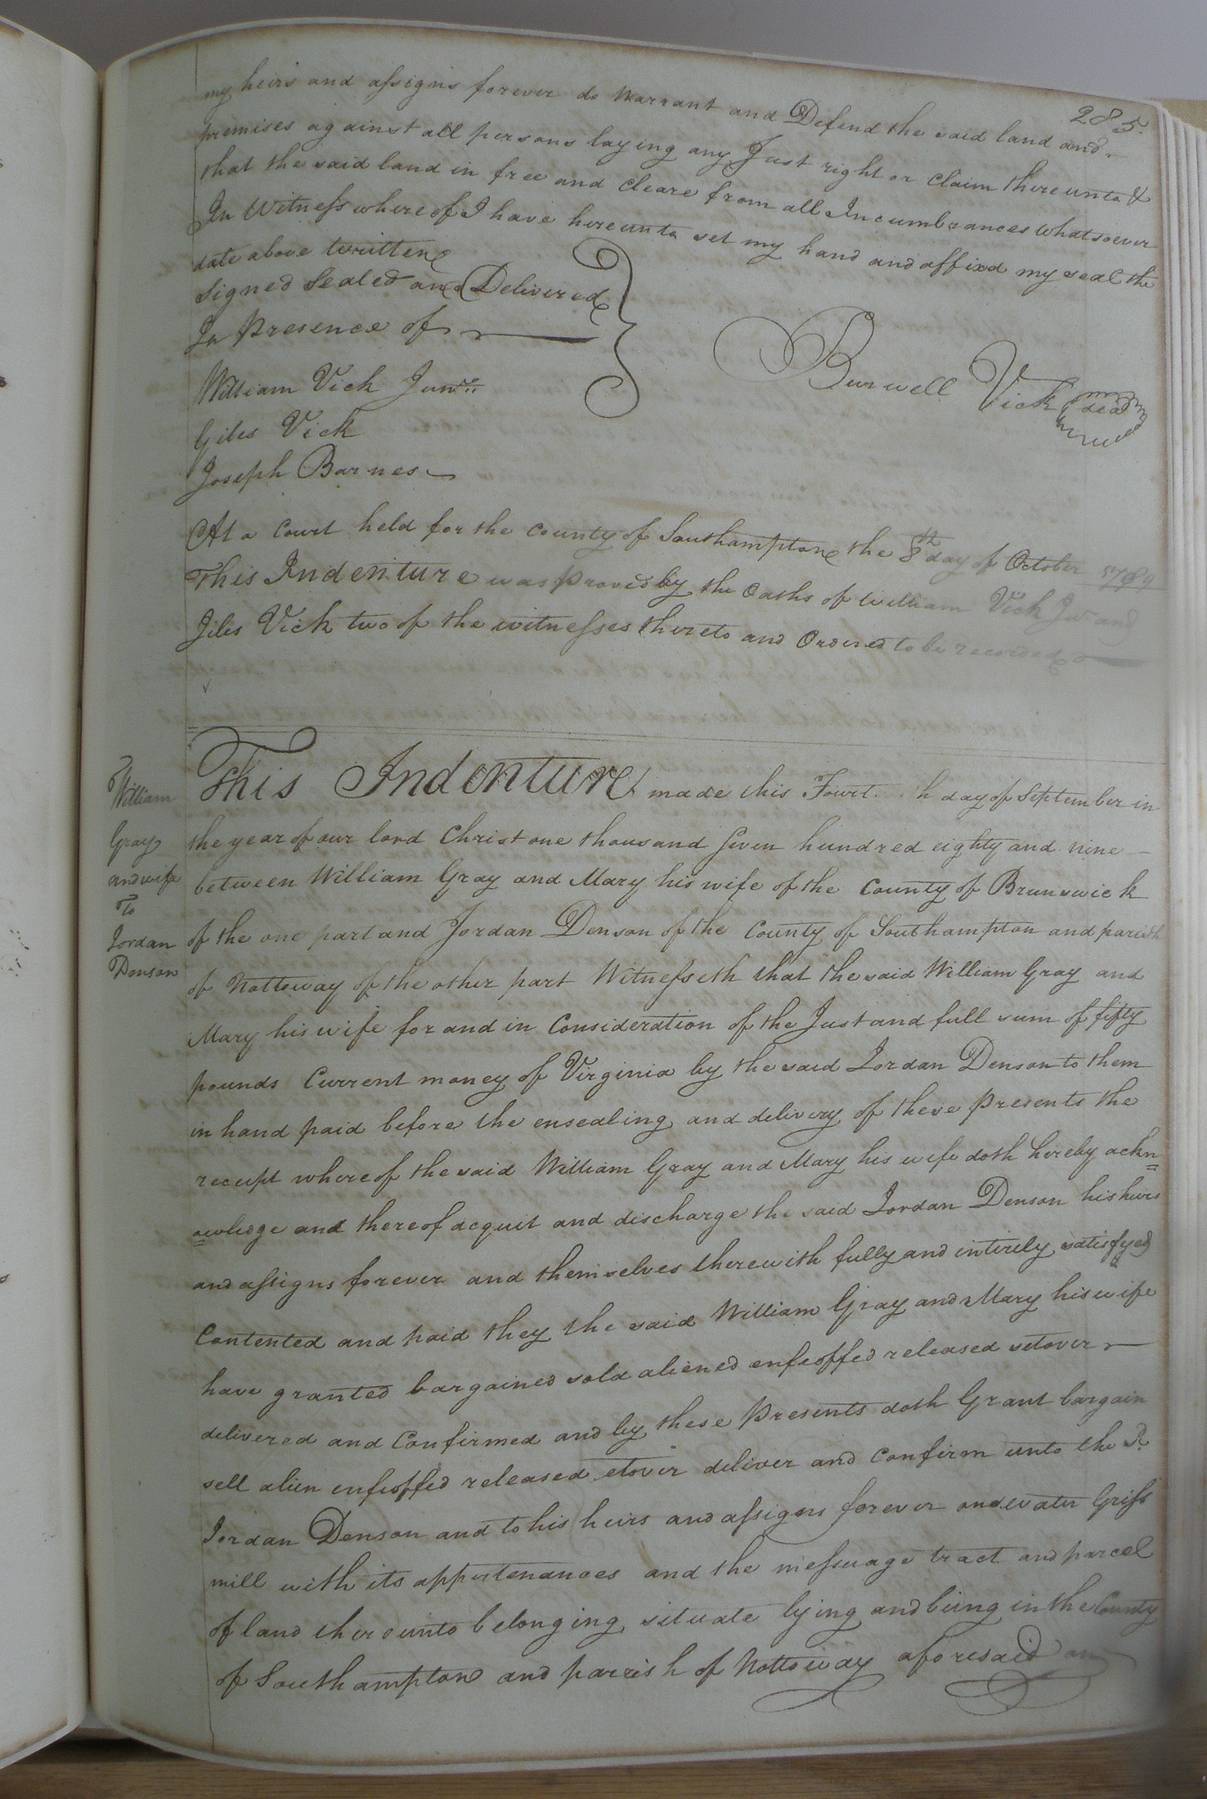 285.
my heirs and assigns forever do Warrant and Defend the said land and
premises against all persons laying any Just right or Claim thereunto &
that the said land in free and cleare from all Incumbrances whatsoever
In Witness whereof I have hereunto set my hand and affixd my seal the
date above written
Signed Sealed and Delivered
In Presence of
William Vick Junr.
Giles Vick
Joseph Barnes
Burwell Vick seal
At a Court held for the County of Southampton the 8th day of October 1789
This Indenture was proved by the Oaths of William Vick Jur and
Jiles Vick two of the witnesses thereto and Ordered to be recorded
William
Gray
and wife
To
Jordan
Denson
This Indenture made this Fourt h day of September in
the year of our lord Christ one thousand seven hundred eighty and nine
between William Gray and Mary his wife of the County of Brunswick
of the one part and Jordan Denson of the County of Southampton and parish
of Nottoway of the other part Witnesseth that the said William Gray and
Mary his wife for and in Consideration of the Just and full sum of fifty
pounds Current money of Virginia by the said Jordan Denson to them
in hand paid before the ensealing and delivery of these Presents the
receipt whereof the said William Gray and Mary his wife doth hereby ackn=
=owledge and thereof acquit and discharge the said Jordan Denson his heirs
and assigns forever and themselves therewith fully and intirely satisfyed
Contented and paid they the said William Gray and Mary his wife
have granted bargained sold aliened enfeoffed released setover
delivered and Confirmed and by these Presents doth Grant bargain
sell alien enfeoffed released etover deliver and Confirm unto the Sd.
Jordan Denson and to his heirs and assigns forever one water Griss
mill with its appertenances and the messuage tract and parcel
of land thereunto belonging situate lying and being in the County
of Southampton and parrish of Nottoway aforesaid an